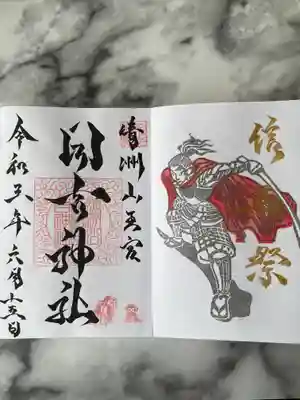 清洲山王宮
日吉神社
令和五年六月十五日
信祭